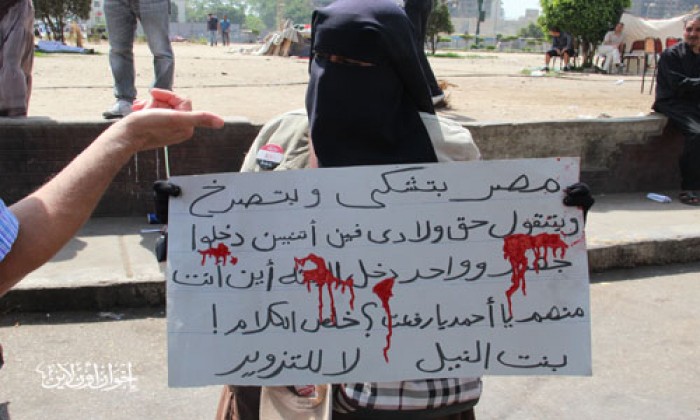 مصر بتشكى وبتصرخ
وبتقول حق ولادى فين أتنين دخلوا
ووواحد دخل أين أنت
منهم يا أحمد يا رفعت؟ خلص الكلام!
بنت النيل لا للتزوير
إخوان أون لاين